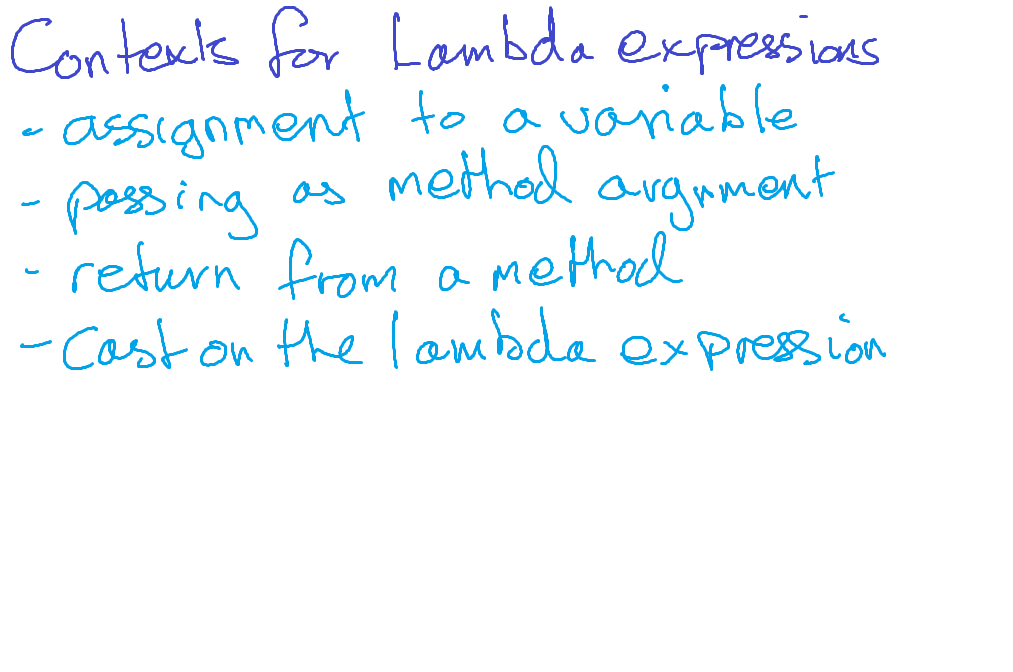 Contexts for Lambda expressions
- assignment to a variable
- passing as method argument
- return from a method
- Cast on the lambda expression